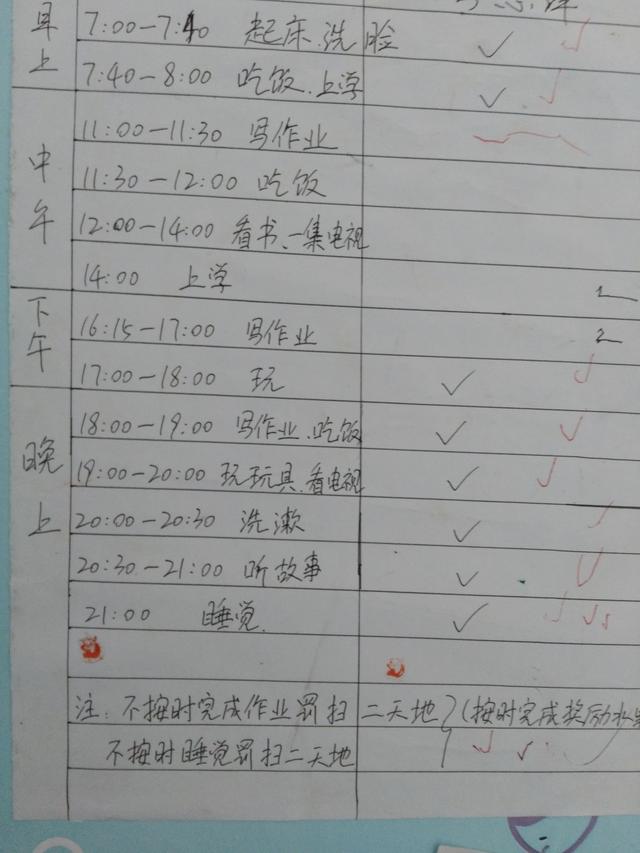 早上
7:00-7:40 起床、洗脸
7:40-8:00 吃饭、上学
中午
11:00-11:30 写作业
11:30-12:00 吃饭
12:00-14:00 看书、一集电视
14:00 上学
1
下午
16:15-17:00 写作业
2
17:00-18:00 玩
晚上
18:00-19:00 写作业、吃饭
19:00-20:00 玩玩具、看电视
20:00-20:30 洗漱
20:30-21:00 听故事
21:00 睡觉.
注:不按时完成作业罚扫二天地(按时完成奖励
不按时睡觉罚扫二天地